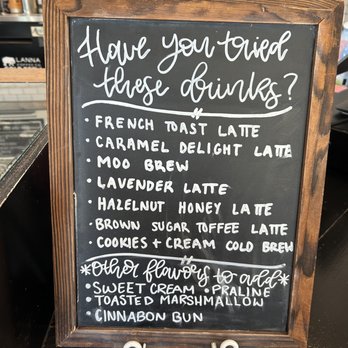 LANNA
Have you tried
these drinks?
• FRENCH TOAST LATTE
• CARAMEL DELIGHT LATTE
• MOO BREW
• LAVENDER LATTE
• HAZELNUT HONEY LATTE
• BROWN SUGAR TOFFEE LATTE
• COOKIES + CREAM COLD BREW
*Other flavors to add*
• SWEET CREAM • PRALINE
• TOASTED MARSHMALLOW
• CINNABON BUN